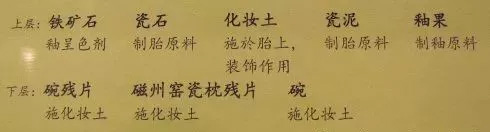 上层：铁矿石 瓷石 化妆土 瓷泥 釉果
釉呈色剂 制胎原料 施於胎上， 制胎原料 制釉原料
装饰作用
下层：碗残片 磁州窑瓷枕残片 碗
施化妆土 施化妆土 施化妆土